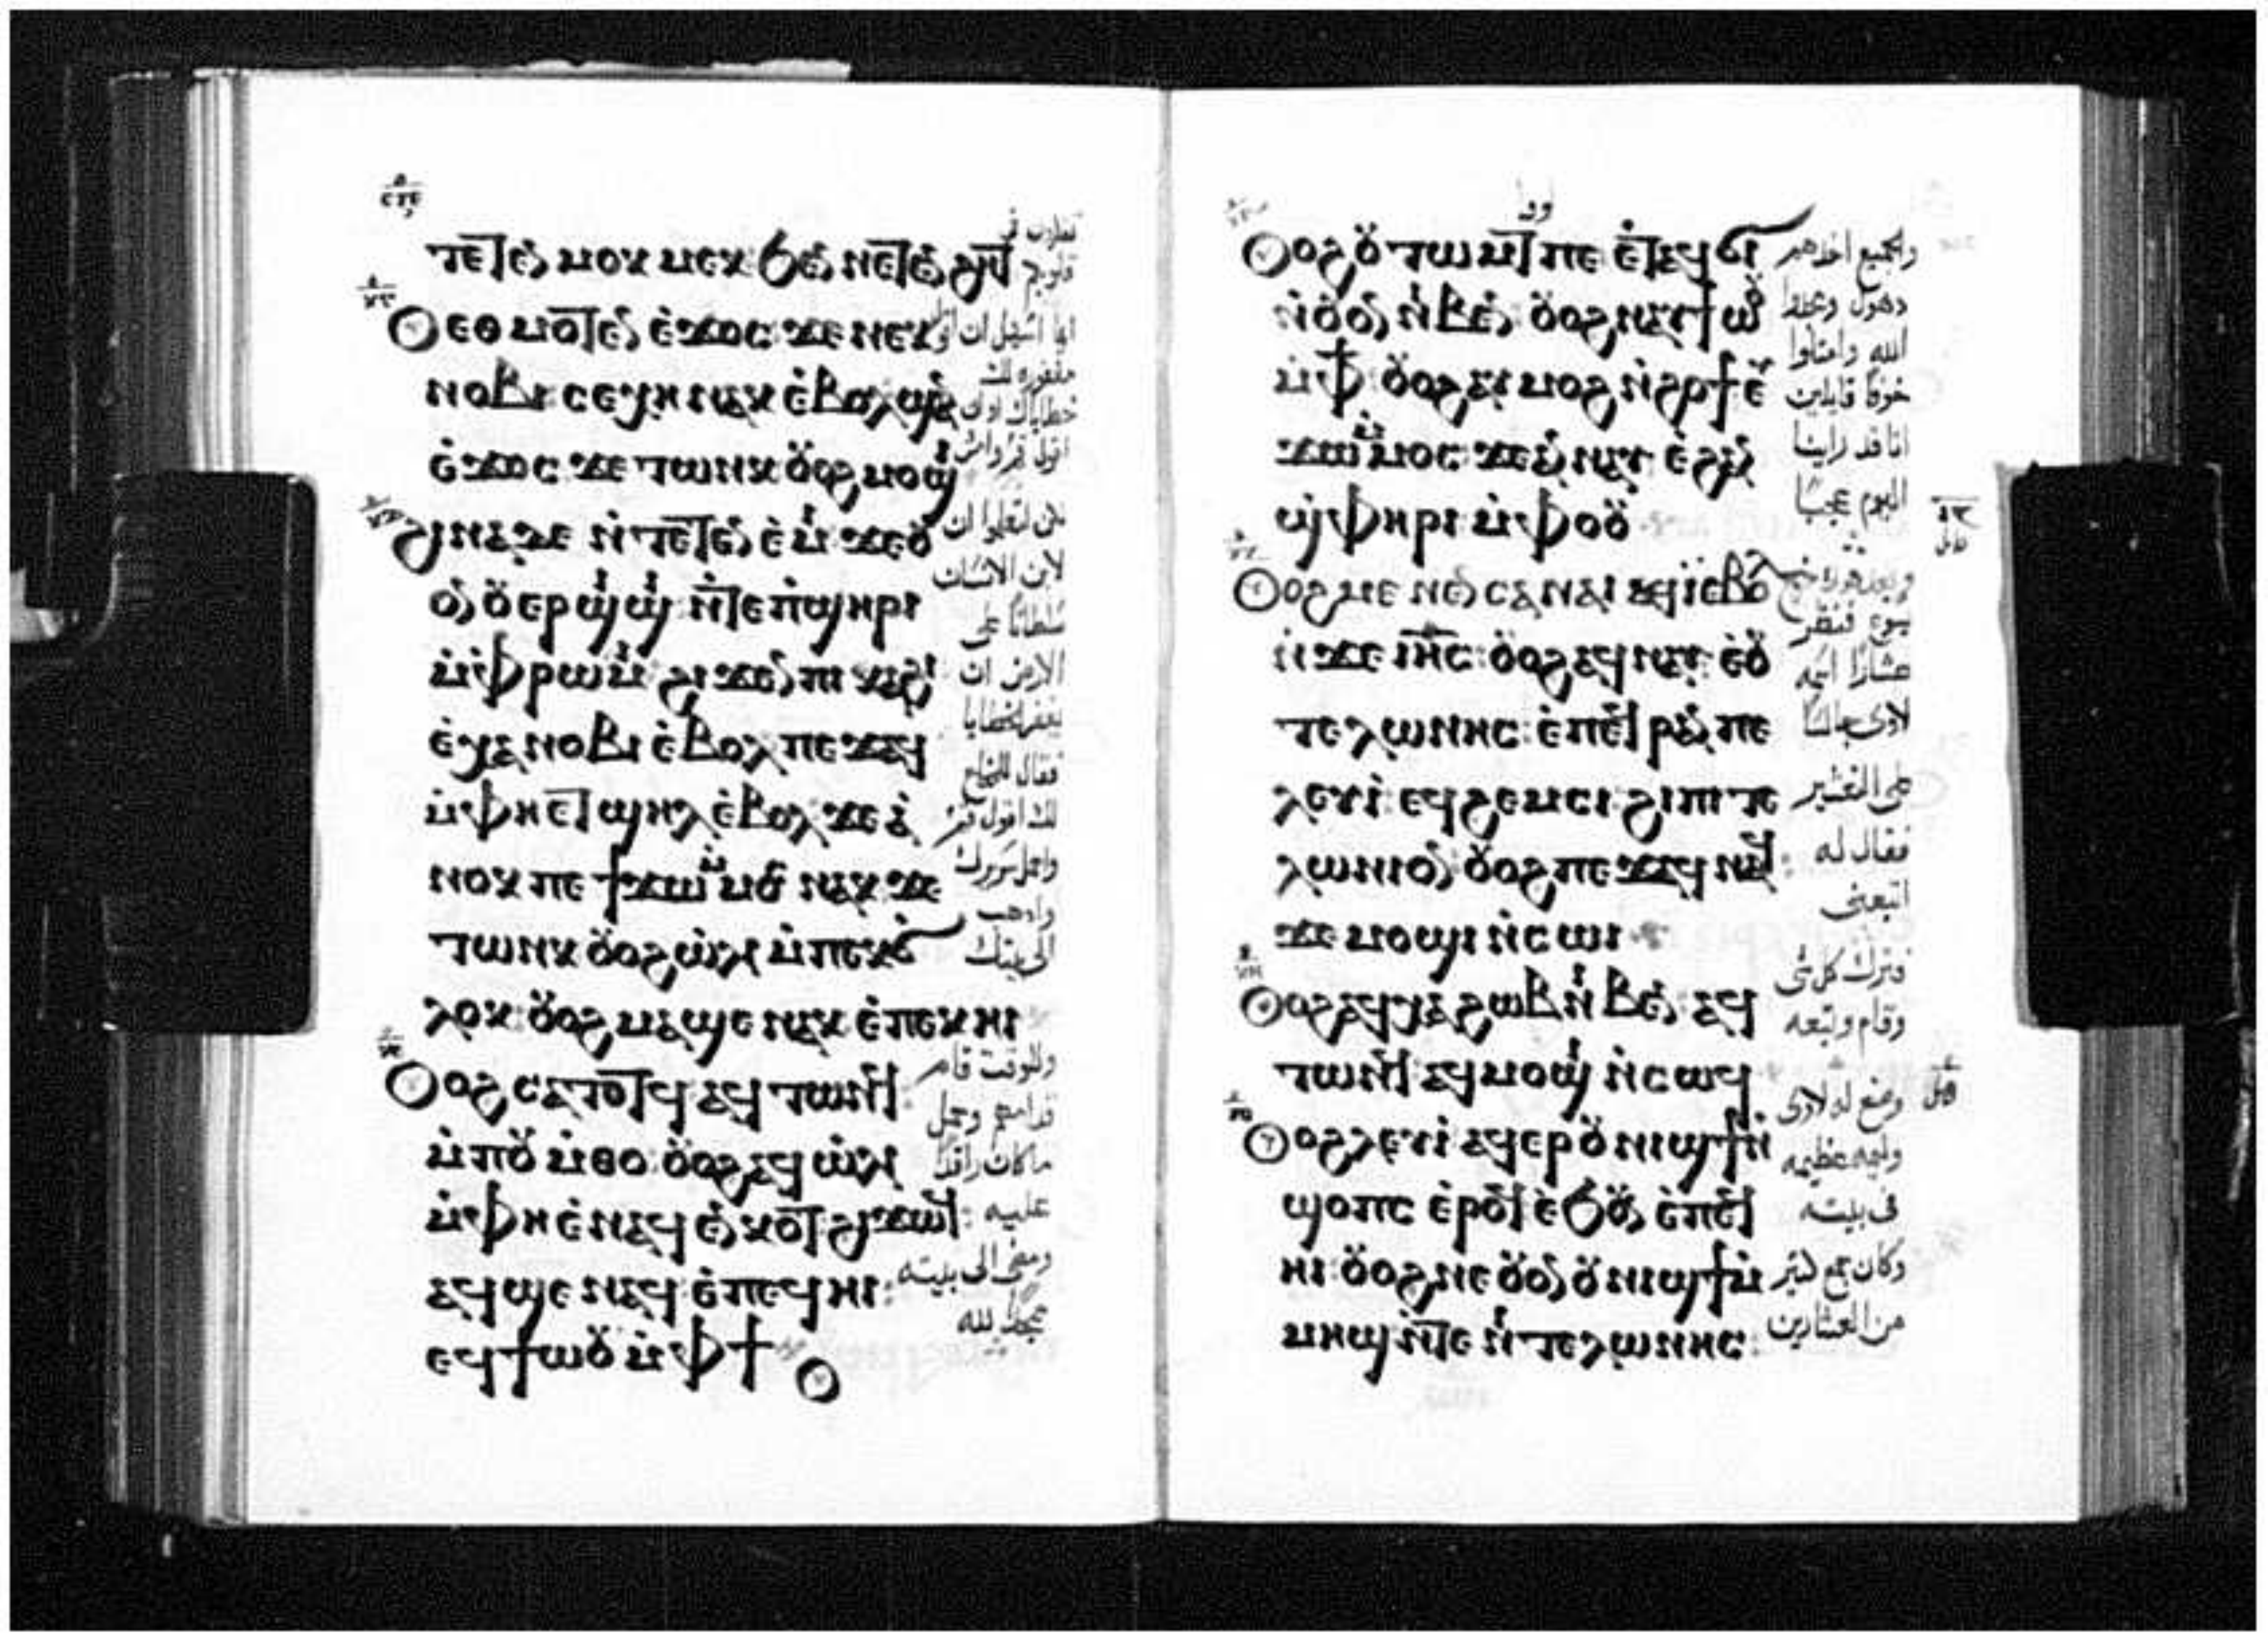 ⲧⲉⲧⲉⲛⲙⲟⲕⲙⲉⲕ ϧⲉⲛ ⲛⲉⲧⲉⲛϩⲏⲧ
Ⲟⲩ ⲉⲑⲙⲟⲧⲉⲛ ⲉ̀ϫⲟⲥ ϫⲉ ⲛⲉⲕ
ⲛⲟⲃⲓ ⲥⲉⲭⲏ ⲛⲁⲕ ⲉ̀ⲃⲟⲗ ϣⲁⲛ
ⲉ̀ϫⲟⲥ ϫⲉ ⲧⲱⲛⲕ ⲟⲩⲟϩ ⲙⲟϣⲓ
ϩⲓⲛⲁ ⲇⲉ ⲛ̀ⲧⲉⲧⲉⲛⲉ̀ⲙⲓ ϫⲉ ⲟⲩ
ⲟⲛ ⲟⲩⲉⲣϣⲓϣⲓ ⲛ̀ⲧⲉ ⲡ̀ϣⲏⲣⲓ
ⲙ̀ⲫ̀ⲣⲱⲙⲓ ϩⲓϫⲉⲛ ⲡⲓⲕⲁϩⲓ
ⲉ̀ⲭⲁ ⲛⲟⲃⲓ ⲉ̀ⲃⲟⲗ ⲡⲉϫⲁϥ
ⲙ̀ⲫⲏ ⲉⲧϣⲏⲗ ⲉ̀ⲃⲟⲗ ϫⲉ ⲁ̀
ⲛⲟⲕ ⲡⲉϯϫⲱ ⲙ̀ⲙⲟⲥ ⲛⲁⲕ ϫⲉ
ⲧⲱⲛⲕ ⲟⲩⲟϩ ⲱ̀ⲗⲓ ⲙ̀ⲡⲉⲕϭ̀
ⲗⲟϫ ⲟⲩⲟϩ ⲙⲁϣⲉ ⲛⲁⲕ ⲉ̀ⲡⲉⲕⲏⲓ
Ⲟⲩⲟϩ ⲥⲁⲧⲟⲧϥ ⲁϥⲧⲱⲛϥ
ⲙ̀ⲡⲟⲩⲙ̀ⲑⲟ ⲟⲩⲟϩ ⲁϥⲱ̀ⲗⲓ
ⲙ̀ⲫⲏ ⲉ̀ⲛⲁϥⲉⲛⲕⲟⲧ ϩⲓϫⲱϥ
ⲁϥϣⲉ ⲛⲁϥ ⲉ̀ⲡⲉϥⲏⲓ
ⲉϥϯⲱⲟⲩ ⲙ̀ⲫϯ
ايما اسهل ان
مغفوره لك
خطاياك
لكى تعلموا ان
لابن الانسان
سلطانا على
الارض ان
يغفر الخطايا
لك اقول قم
واحمل سريرك
واذهب
الى بيتك
وللوقت قام
قدامهم وحمل
ما كان راقدا
عليه
ومضى الى بيته
ممجدا لله
Ⲟⲩⲟϩ ⲟⲩⲧⲱⲙⲧ ⲡⲉ ⲉ̀ⲧⲁϥϭⲓ
ⲛ̀ⲟⲩⲟⲛ ⲛⲓⲃⲉⲛ ⲟⲩⲟϩ ⲛⲁⲩϯⲱⲟⲩ
ⲙ̀ⲫϯ ⲟⲩⲟϩ ⲁⲩⲙⲟϩ ⲛ̀ϩⲟϯ ⲉⲩ
ϫⲱ ⲙ̀ⲙⲟⲥ ϫⲉ ⲁⲛⲛⲁⲩ ⲉ̀ϩⲁⲛ
ϣ̀ⲫⲏⲣⲓ ⲙ̀ⲫⲟⲟⲩ
Ⲟⲩⲟϩ ⲙⲉⲛⲉⲛⲥⲁ ⲛⲁⲓ ⲁϥⲓ̀ ⲉ̀ⲃⲟⲗ
ⲛ̀ϫⲉ ⲓⲏⲥ ⲟⲩⲟϩ ⲁϥⲛⲁⲩ ⲉ̀ⲟⲩ
ⲧⲉⲗⲱⲛⲏⲥ ⲉ̀ⲡⲉϥⲣⲁⲛ ⲡⲉ
ⲗⲉⲩⲓ̀ ⲉϥϩⲉⲙⲥⲓ ϩⲓ ⲡⲓⲧⲉ
ⲗⲱⲛⲓⲟⲛ ⲟⲩⲟϩ ⲡⲉϫⲁϥ ⲛⲁϥ
ϫⲉ ⲙⲟϣⲓ ⲛ̀ⲥⲱⲓ
Ⲟⲩⲟϩ ⲁϥⲭⲁ ϩⲱⲃ ⲛⲓⲃⲉⲛ ⲁϥ
ⲧⲱⲛϥ ⲁϥⲙⲟϣⲓ ⲛ̀ⲥⲱϥ
Ⲟⲩⲟϩ ⲗⲉⲩⲓ̀ ⲁϥⲉⲣ ⲟⲩⲛⲓϣϯ ⲛ̀
ϣⲟⲡⲥ ⲉ̀ⲣⲟϥ ⲉ̀ϧⲟⲩⲛ ⲉ̀ⲡⲉϥ
ⲏⲓ ⲟⲩⲟϩ ⲛⲉ ⲟⲩⲟⲛ ⲟⲩⲛⲓϣϯ ⲙ̀
ⲙⲏϣ ⲛ̀ⲧⲉ ⲛⲓⲧⲉⲗⲱⲛⲏⲥ
والجميع اخذهم
الله وامتلوا
خوفا قايلين
اننا قد راينا
اليوم عجبا
يسوع فنظر
عشارا اسمه
لاوى جالسا
فقال له
اتبعنى
فترك كل شى
وقام وتبعه
وصنع له لاوى
وليمه عظيمه
فى بيته
وكان جمع كثير
من العشارين